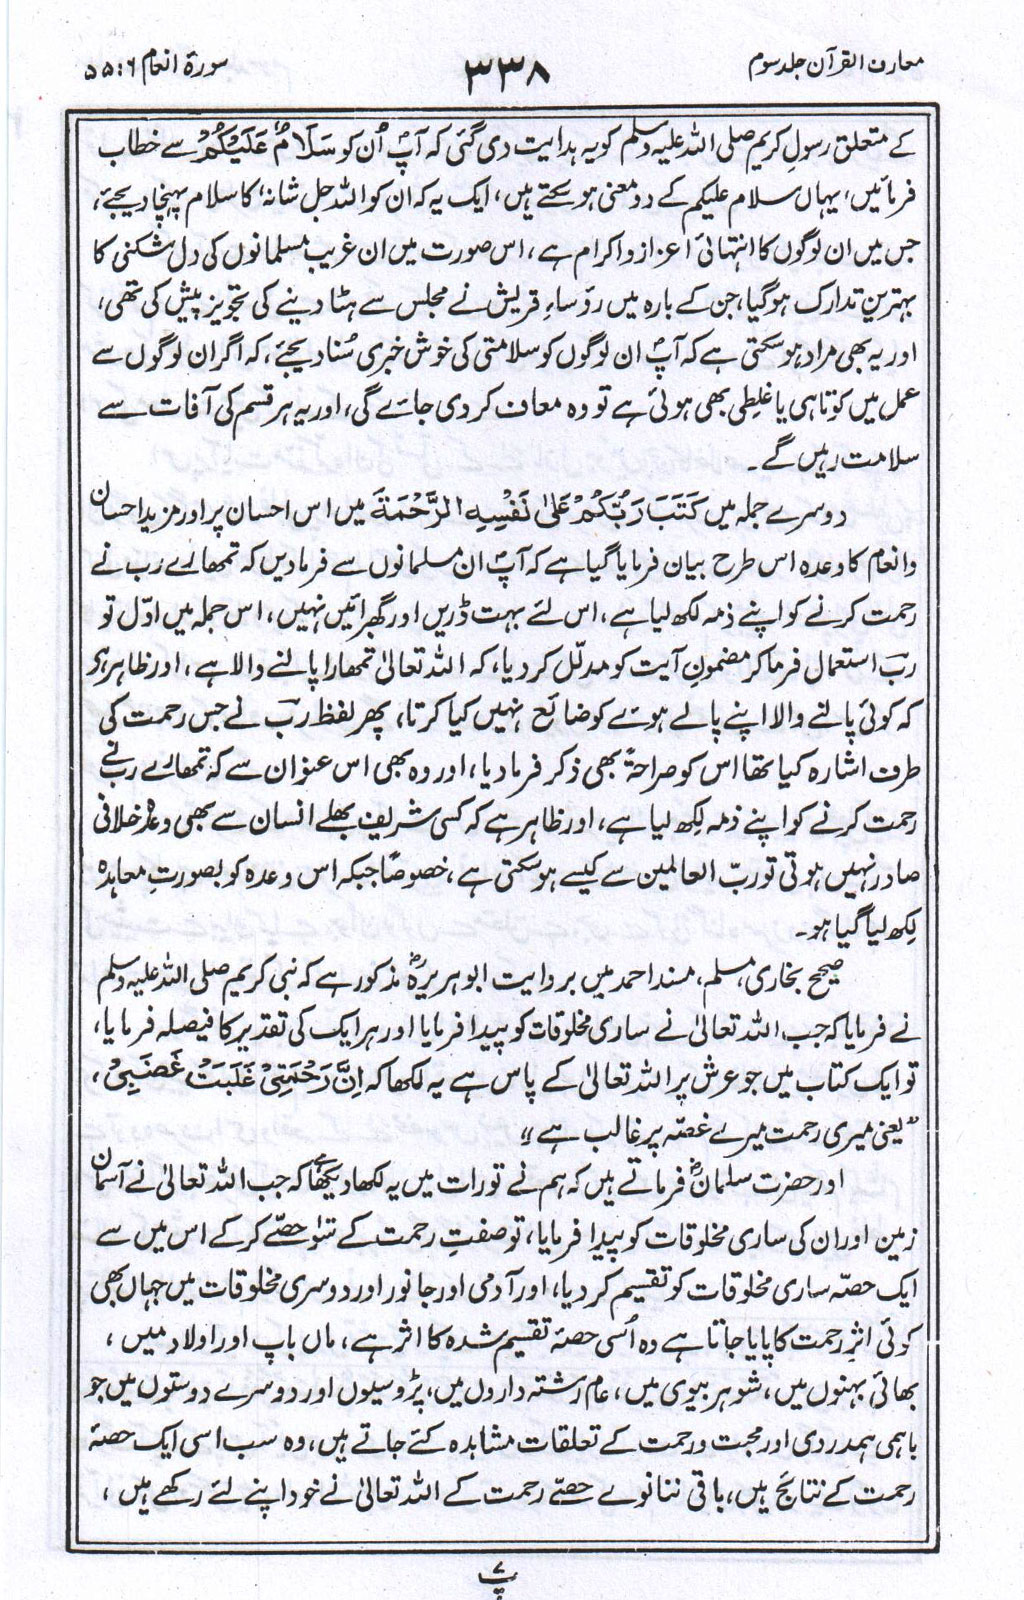 معارف القرآن جلد سوم ۳۳۸ سورۃ انعام ۶ : ۵۵
کے متعلق رسولِ کریم صلی اللہ علیہ وسلم کو یہ ہدایت دی گئی کہ آپؐ اُن کو سَلَامٌ عَلَيْكُمْ سے خطاب
فرمائیں، یہاں سلام علیکم کے دو معنی ہو سکتے ہیں، ایک یہ کہ ان کو اللہ جل شانہ‘ کا سلام پہنچا دیجئے،
جس میں ان لوگوں کا انتہائی اعزاز و اکرام ہے، اس صورت میں ان غریب مسلمانوں کی دل شکنی کا
بہترین تدارک ہوگیا، جن کے بارہ میں رؤساءِ قریش نے مجلس سے ہٹا دینے کی تجویز پیش کی تھی،
اور یہ بھی مراد ہو سکتی ہے کہ آپؐ ان لوگوں کو سلامتی کی خوش خبری سُنا دیجئے، کہ اگر ان لوگوں سے
عمل میں کوتاہی یا غلطی بھی ہوئی ہے تو وہ معاف کر دی جائے گی، اور یہ ہر قسم کی آفات سے
سلامت رہیں گے۔
دوسرے جملہ میں كَتَبَ رَبُّكُمْ عَلٰى نَفْسِهِ الرَّحْمَةَ میں اس احسان پر اور مزید احسان
و انعام کا وعدہ اس طرح بیان فرمایا گیا ہے کہ آپؐ ان مسلمانوں سے فرما دیں کہ تمھارے رب نے
رحمت کرنے کو اپنے ذمہ لکھ لیا ہے، اس لئے بہت ڈریں اور گھبرائیں نہیں، اس جملہ میں اوّل تو
رب استعمال فرما کر مضمونِ آیت کو مدلّل کر دیا، کہ اللہ تعالیٰ تمھارا پالنے والا ہے، اور ظاہر ہے
کہ کوئی پالنے والا اپنے پالے ہوئے کو ضائع نہیں کیا کرتا، پھر لفظ رب نے جس رحمت کی
طرف اشارہ کیا تھا اس کو صراحۃً بھی ذکر فرما دیا، اور وہ بھی اس عنوان سے کہ تمھارے رب نے
رحمت کرنے کو اپنے ذمہ لکھ لیا ہے، اور ظاہر ہے کہ کسی شریف بھلے انسان سے بھی وعدہ خلافی
صادر نہیں ہوتی تو ربّ العالمین سے کیسے ہو سکتی ہے، خصوصًا جبکہ اس وعدہ کو بصورتِ معاہدہ
لکھ لیا گیا ہو۔
صحیح بخاری، مسلم، مسند احمد میں بروایت ابوہریرہؓ مذکور ہے کہ نبی کریم صلی اللہ علیہ وسلم
نے فرمایا کہ جب اللہ تعالیٰ نے ساری مخلوقات کو پیدا فرمایا اور ہر ایک کی تقدیر کا فیصلہ فرمایا،
تو ایک کتاب میں جو عرش پر اللہ تعالیٰ کے پاس ہے یہ لکھا کہ اِنَّ رَحْمَتِيْ غَلَبَتْ غَضَبِيْ،
”یعنی میری رحمت میرے غصّہ پر غالب ہے“
اور حضرت سلمانؓ فرماتے ہیں کہ ہم نے تورات میں یہ لکھا دیکھا ہے کہ جب اللہ تعالیٰ نے آسمان
زمین اور ان کی ساری مخلوقات کو پیدا فرمایا، تو صفتِ رحمت کے سَو حصّے کر کے اس میں سے
ایک حصّہ ساری مخلوقات کو تقسیم کر دیا، اور آدمی اور جانور اور دوسری مخلوقات میں جہاں بھی
کوئی اثرِ رحمت کا پایا جاتا ہے وہ اُسی حصۂ تقسیم شدہ کا اثر ہے، ماں باپ اور اولاد میں،
بھائی بہنوں میں، شوہر بیوی میں، عام رشتہ داروں میں، پڑوسیوں اور دوسرے دوستوں میں جو
باہمی ہمدردی اور محبت و رحمت کے تعلقات مشاہدہ کئے جاتے ہیں، وہ سب اسی ایک حصۂ
رحمت کے نتائج ہیں، باقی ننانوے حصّے رحمت کے اللہ تعالیٰ نے خود اپنے لئے رکھے ہیں،
پ۷